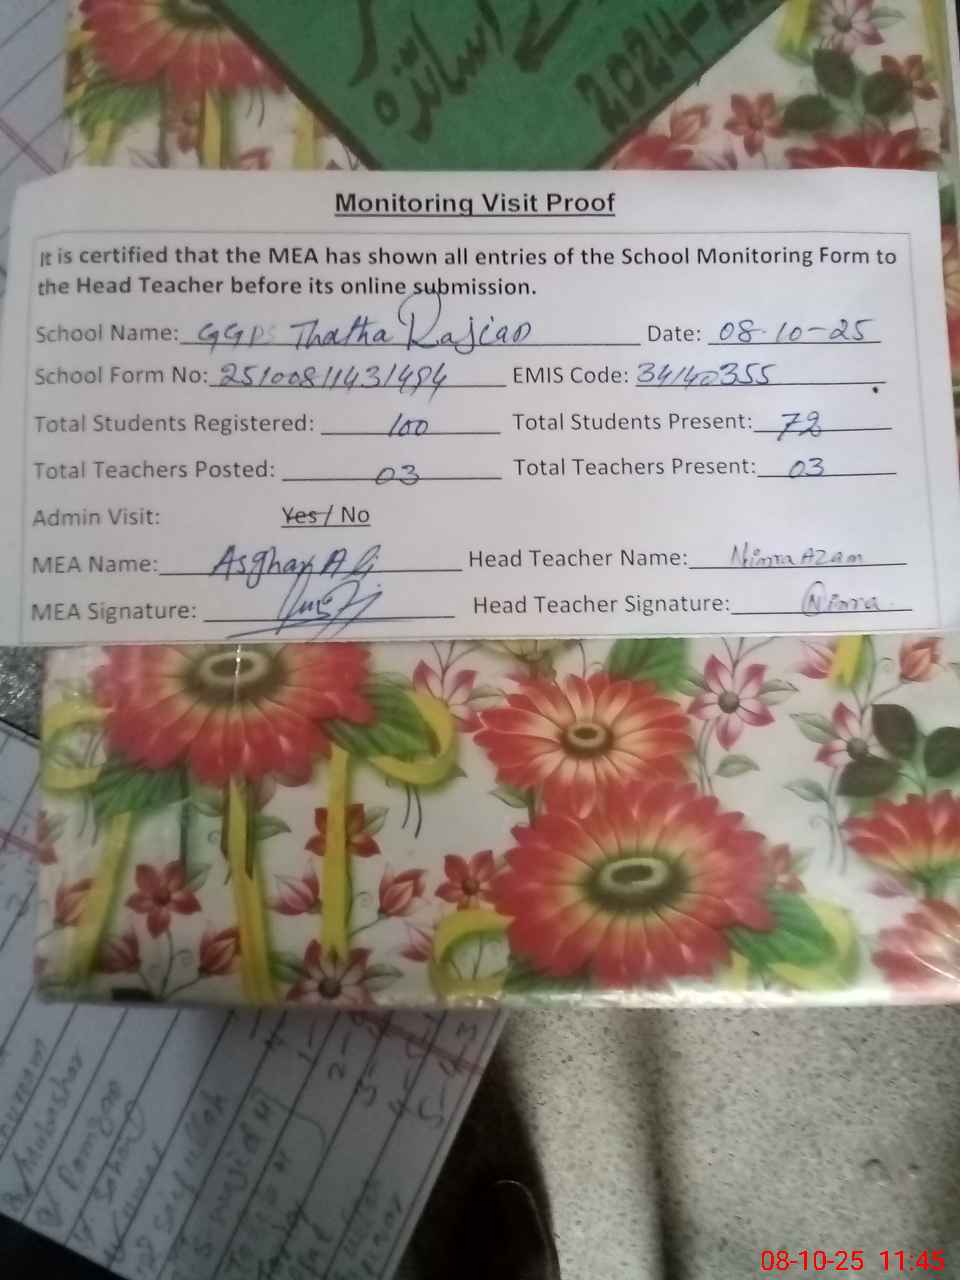 اساتذہ
2024-
Monitoring Visit Proof
It is certified that the MEA has shown all entries of the School Monitoring Form to
the Head Teacher before its online submission.
School Name: GGPS Thatha Rajiao Date: 08-10-25
School Form No: 25100811431494 EMIS Code: 34140355
Total Students Registered: 100 Total Students Present: 78
Total Teachers Posted: 03 Total Teachers Present: 03
Admin Visit: Yes / No
MEA Name: Asghar Ali Head Teacher Name: Nimra Azam
MEA Signature: Head Teacher Signature: Nimra
Mubashar
Saifullah
08-10-25 11:45